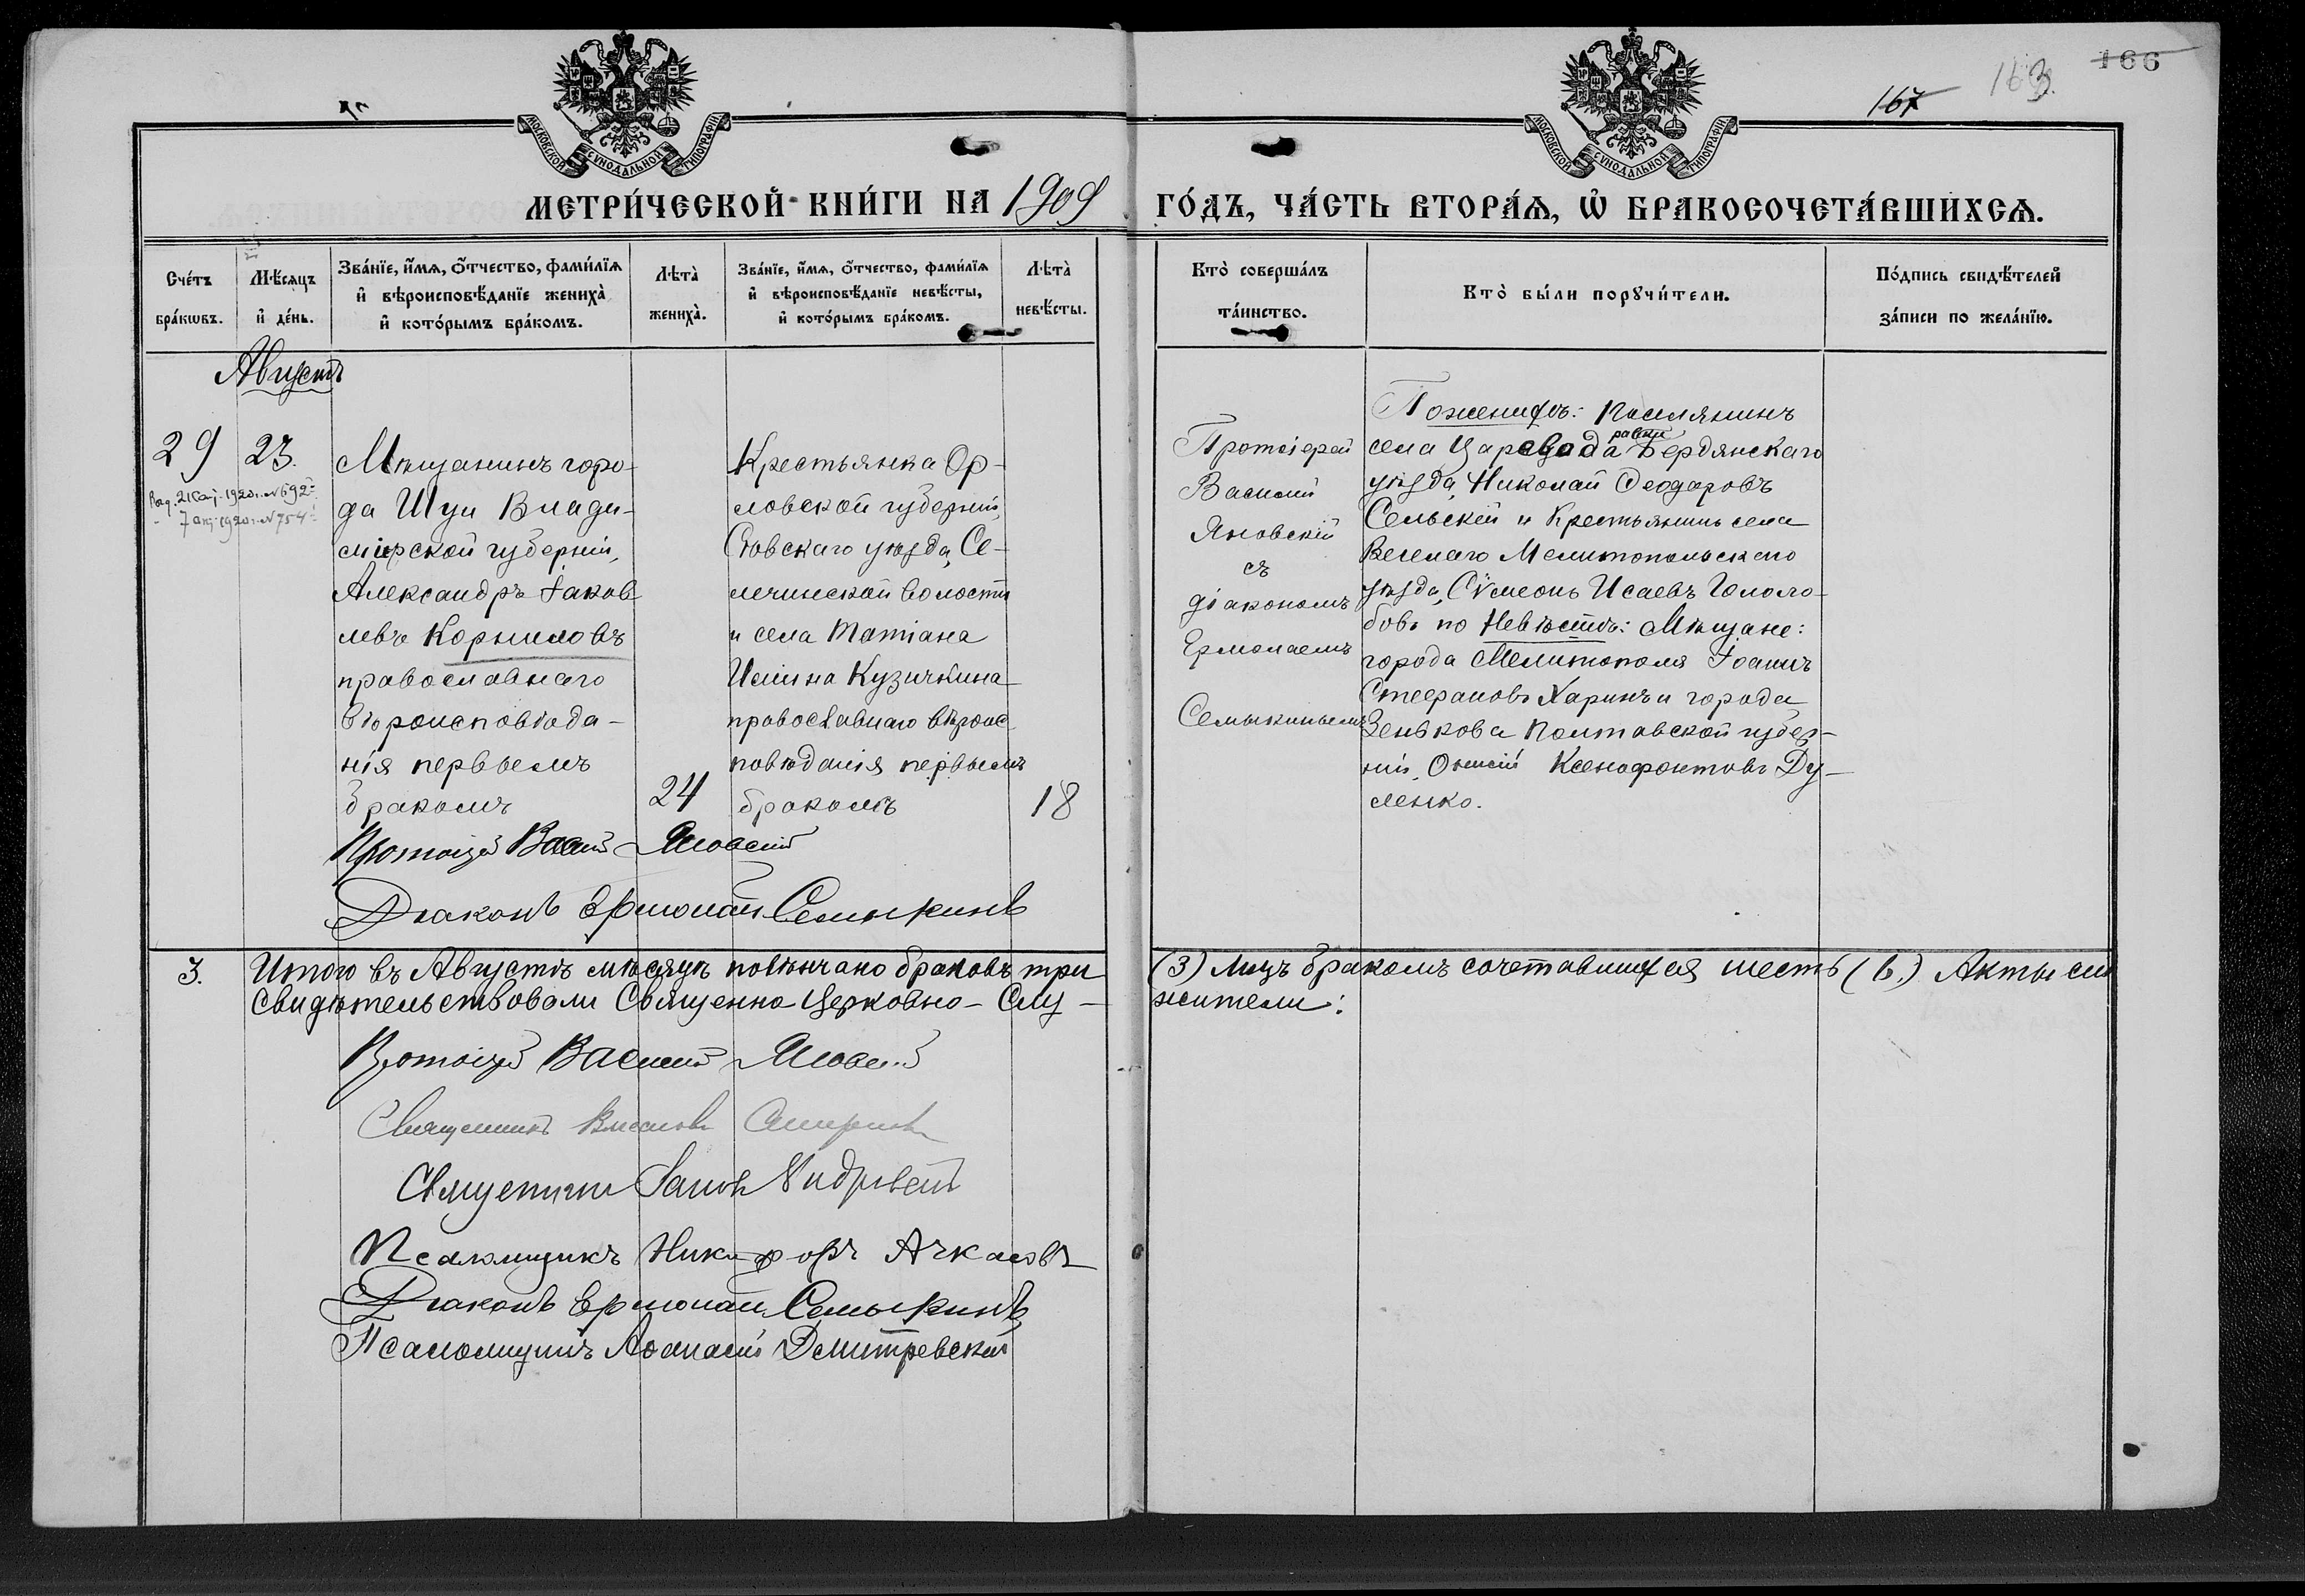 166
163.
167
МОСКОВСКОЙ СѴНОДАЛЬНОЙ ТИПОГРАФІИ
МОСКОВСКОЙ СѴНОДАЛЬНОЙ ТИПОГРАФІИ
МЕТРИ́ЧЕСКОЙ КНИ́ГИ НА 1909 ГО́ДЪ, ЧА́СТЬ ВТОРА́Ѧ, Ѽ БРАКОСОЧЕТА́ВШИХСѦ.
Сче́тъ бра́кѡвъ.
Мѣ́сѧцъ и҆ де́нь.
Зва́нїе, и҆́мѧ, ѻ҆́тчество, фами́лїѧ и҆ вѣроисповѣ́данїе жениха̀ и҆ кото́рымъ бра́комъ.
Лѣта̀ жениха̀.
Зва́нїе, и҆́мѧ, ѻ҆́тчество, фами́лїѧ и҆ вѣроисповѣ́данїе невѣ́сты, и҆ кото́рымъ бра́комъ.
Лѣта̀ невѣ́сты.
Кто̀ соверша́лъ та́инство.
Кто̀ бы́ли порꙋчи́тели.
По́дпись свидѣ́телей за́писи по жела́нїю.
Августъ
29
23.
1920 г. № 692
7 1920 г. № 754
Мѣщанинъ горо-
да Шуи Влади-
мірской губерніи,
Александръ Іаков
левъ Корниловъ
православнаго
вѣроисповѣда-
нія первымъ
бракомъ
24
Крестьянка Ор-
ловской губерніи,
Сѣвскаго уѣзда, Се-
лечинской волости
и села Татіана
Исаіина Кузичкина
православнаго вѣроис
повѣданія первымъ
бракомъ
18
Протоіерей
Василій
Яновскій
съ
діакономъ
Ермолаемъ
Семыкинымъ
По женихѣ: Поселянинъ
села Царевода Бердянскаго
уѣзда, Николай Ѳеодоровъ
Сельскій и Крестьянинъ села
Веселаго Мелитопольскаго
уѣзда, Сѵмеонъ Исаевъ Гололо-
бовъ по Невѣстѣ: Мѣщане:
города Мелитополя Іоаннъ
Стефановъ Харинъ и города
Зенькова Полтавской губер-
ніи, Ксенофонтовъ Ду-
ленко.
Протоіерей Василій Яновскій
Діаконъ Ермолай Семыкинъ
3. Итого въ Августѣ мѣсяцѣ повѣнчано браковъ три (3) лицъ бракомъ сочетавшихся шесть (6.) Акты сіи
Свидѣтельствовали Священно Церковно-Слу-жители:
Протоіерей Василій Яновскій
Священникъ Смирновъ
Священникъ
Псаломщикъ Никифоръ Ачкасовъ
Діаконъ Ермолай Семыкинъ
Псаломщикъ Аѳанасій Дмитревскій